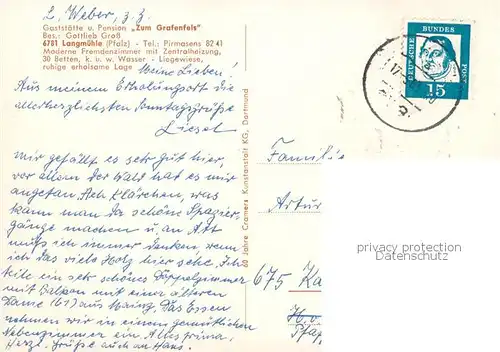 L. Weber, z. Z.
Gaststätte u. Pension „Zum Grafenfels"
Bes.: Gottlieb Groß
6781 Langmühle (Pfalz) - Tel.: Pirmasens 82 41
Moderne Fremdenzimmer mit Zentralheizung,
30 Betten, k. u. w. Wasser - Liegewiese,
ruhige erholsame Lage
Meine Lieben!
Aus meinem Erholungsort die
allerherzlichsten Sonntagsgrüße
Liesel
Mir gefällt es sehr gut hier,
vor allem der Wald hat es mir
angetan. Ach Klärchen, was
kann man da schöne Spazier=
gänge machen u. an
muß ich immer denken, wenn
ich das viele Holz hier sehe. Ich
teile ein sehr schönes Doppelzimmer
mit Balkon mit einer älteren
Dame (61) aus Mainz. Das Essen
nehmen wir in einem gemütlichen
Nebenzimmer ein. Alles prima.
Herzl. Grüße auch an Hans.
60 Jahre Cramers Kunstanstalt KG, Dortmund
DEUTSCHE BUNDES POST
15
Familie
Artur
675 Ka
privacy protection
www.ansichtskarten-lexikon.de